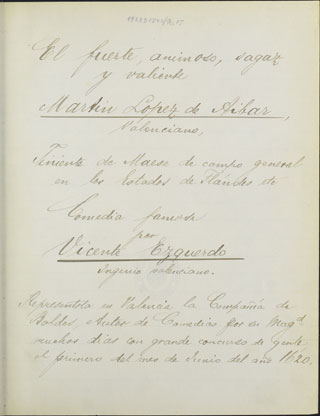 El fuerte, animoso, sagaz
y valiente
Martin Lopez de Aibar,
Valenciano,
Teniente de Maese de campo general
en los Estados de Flándes etc
Comedia famosa
por
Vicente Ezguerdo
Ingenio valenciano.
Representola en Valencia la Compañia de
Valdes, Autor de Comedias por su Magd.
muchos dias con grande concurso de gente
el primero del mes de Junio del año 1620.